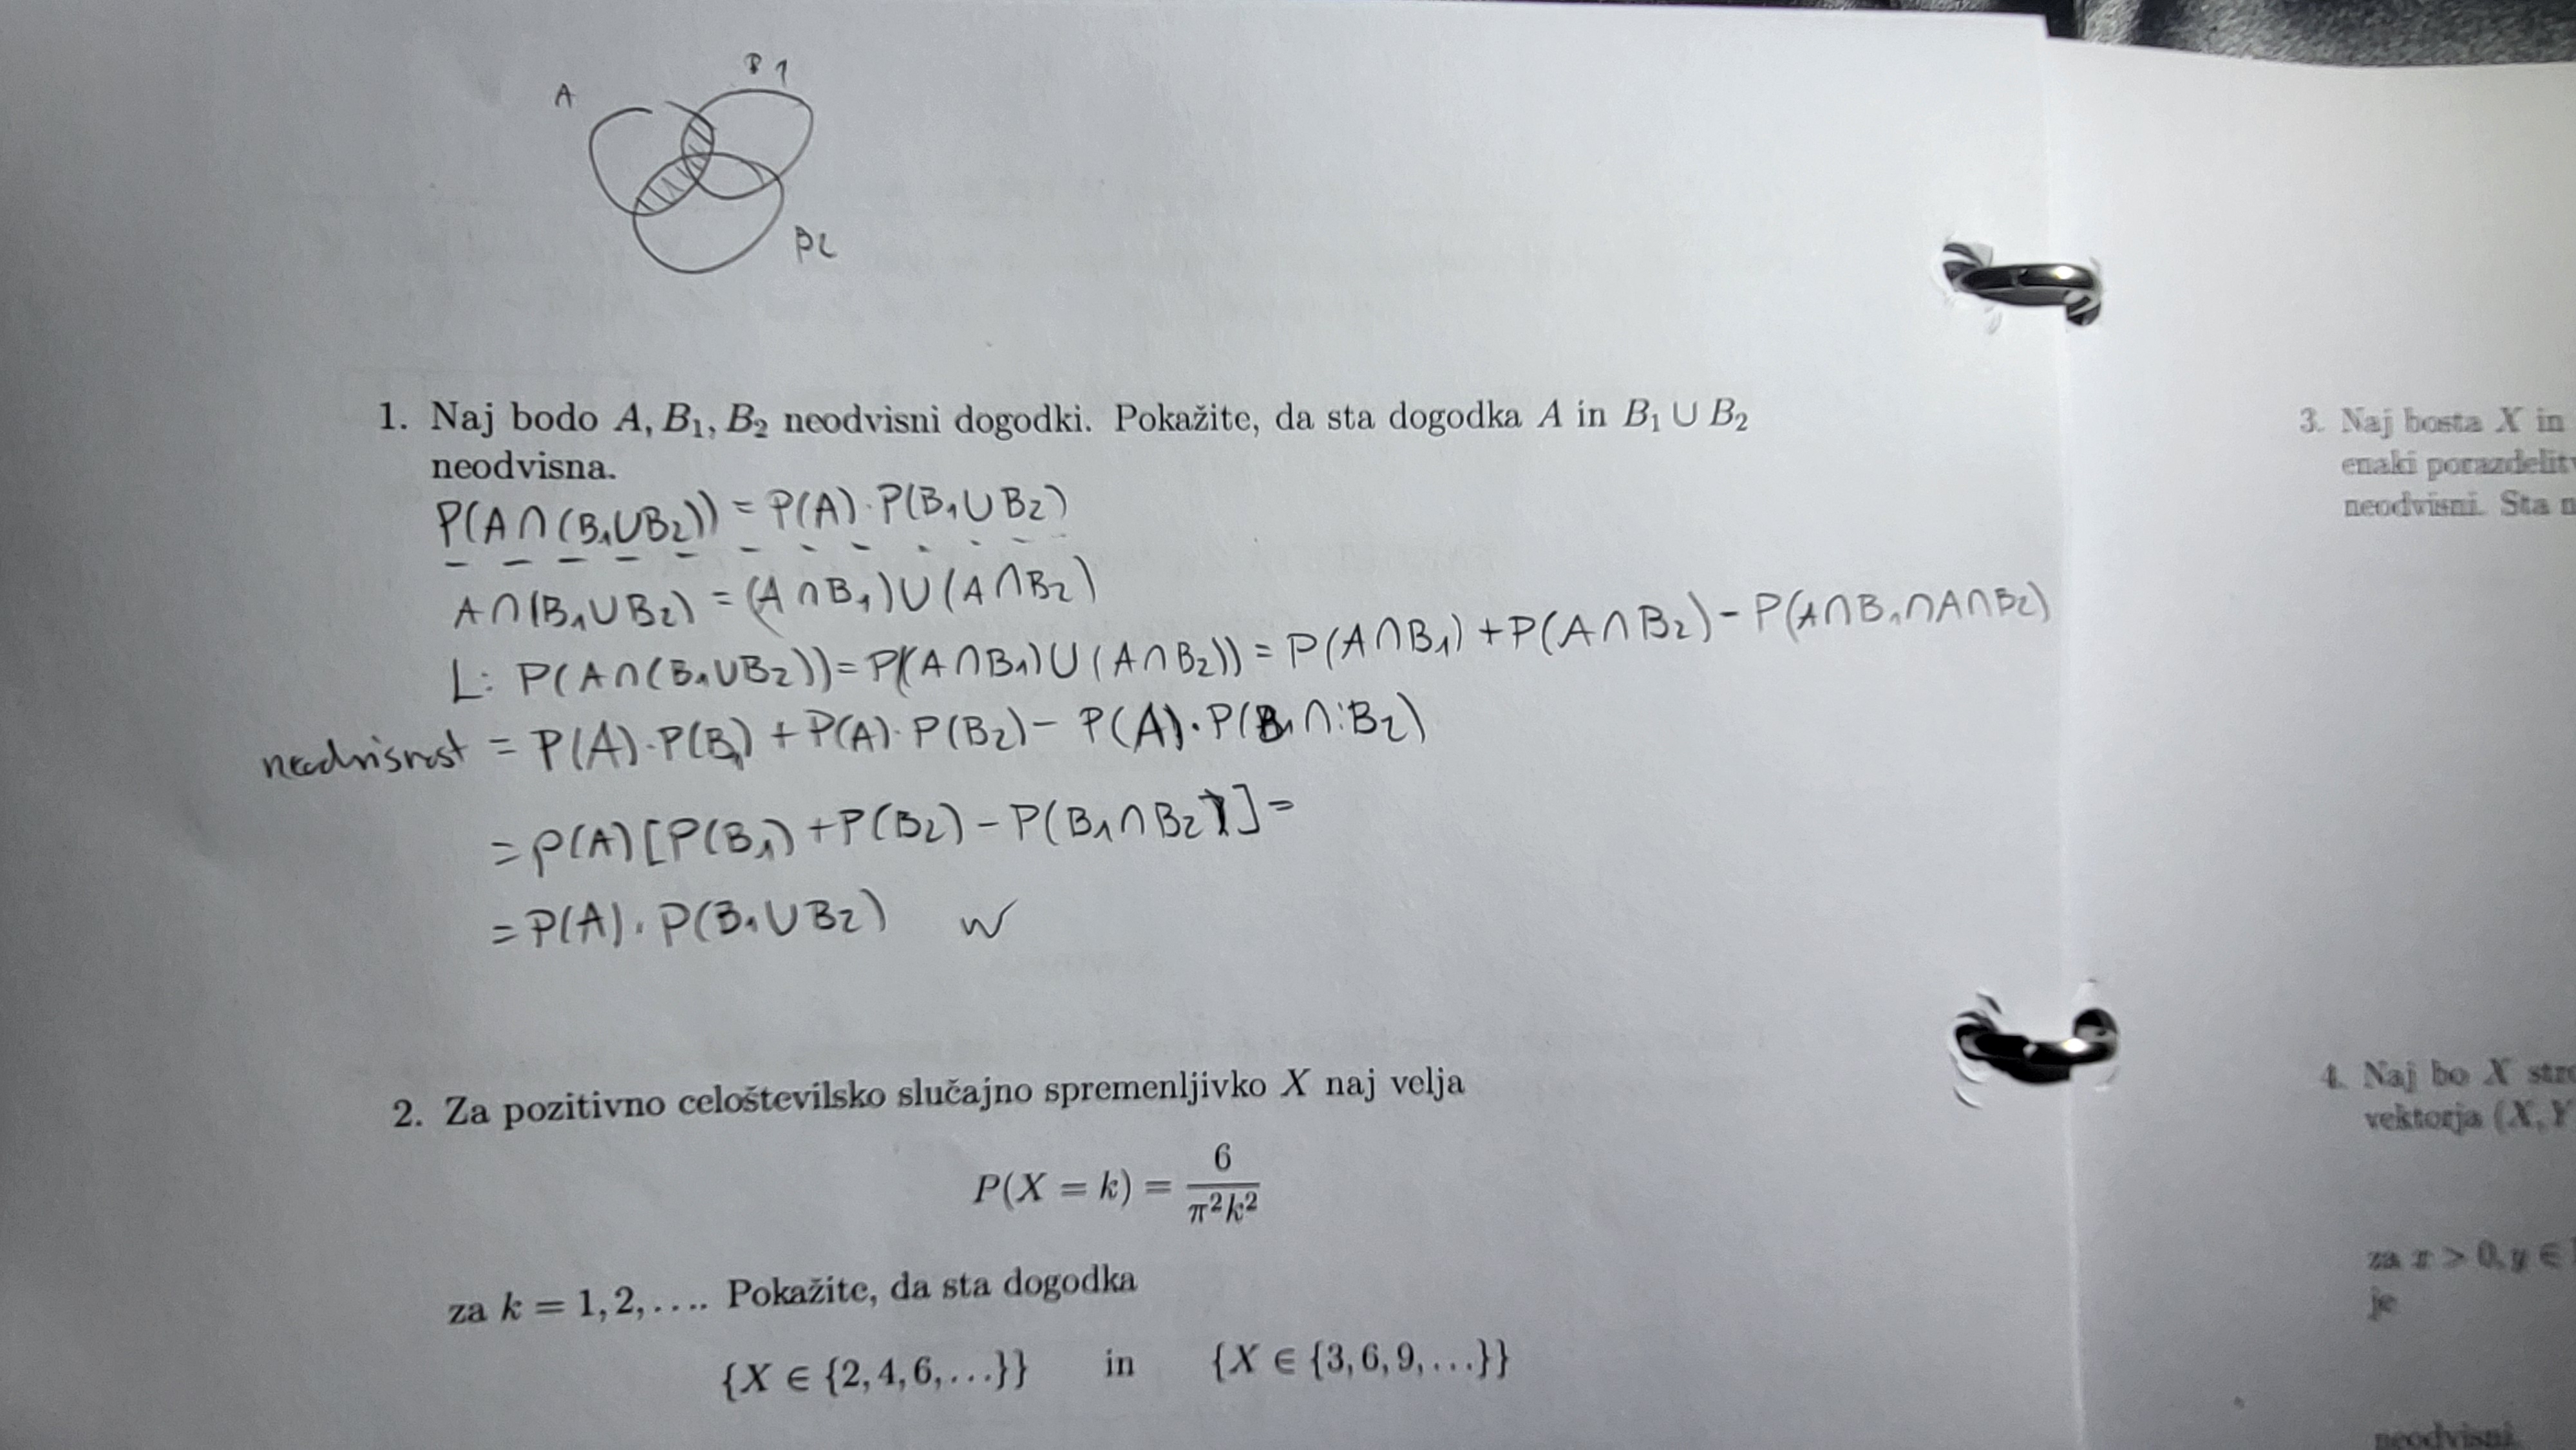 A
B1
B2
1. Naj bodo A, B₁, B₂ neodvisni dogodki. Pokažite, da sta dogodka A in B₁ ∪ B₂
neodvisna.
P(A∩(B₁∪B₂)) = P(A)·P(B₁∪B₂)
A∩(B₁∪B₂) = (A∩B₁)∪(A∩B₂)
L: P(A∩(B₁∪B₂)) = P((A∩B₁)∪(A∩B₂)) = P(A∩B₁)+P(A∩B₂)-P(A∩B₁∩A∩B₂)
= P(A)·P(B₁)+P(A)·P(B₂)-P(A)·P(B₁∩B₂)
= P(A)[P(B₁)+P(B₂)-P(B₁∩B₂)] =
= P(A)·P(B₁∪B₂)
2. Za pozitivno celoštevilsko slučajno spremenljivko X naj velja
P(X = k) = 6/π²k²
za k = 1, 2, .... Pokažite, da sta dogodka
{X ∈ {2, 4, 6, ...}} in {X ∈ {3, 6, 9, ...}}
3. Naj bosta X in
enaki porazdelitv
neodvisni. Sta
4. Naj bo X
vektorja (X, Y
za x > 0, y ∈
je
neodvisni